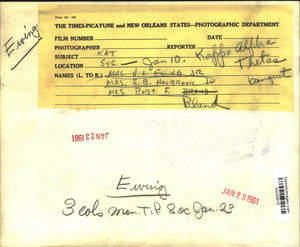 Form No. 108
THE TIMES-PICAYUNE and NEW ORLEANS STATES—PHOTOGRAPHIC DEPARTMENT
Ewing
FILM NUMBER DATE
PHOTOGRAPHER REPORTER
SUBJECT KAT Kappa Alpha
LOCATION SYC — Jan 10. Thetas
NAMES (L. TO R.) MRS. J. L. EWING JR banquet
MRS. S. B. HOLBROOK JR
MRS. ROBT. F. BRAND
Bland
JAN 23 1961
Ewing
JAN 23 1961
3 cols mon. T.P. Soc Jan. 23